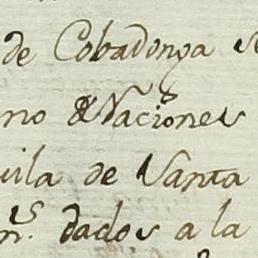 de Cobadonga se
no Naciones
uila de Santa
n.s dados a la